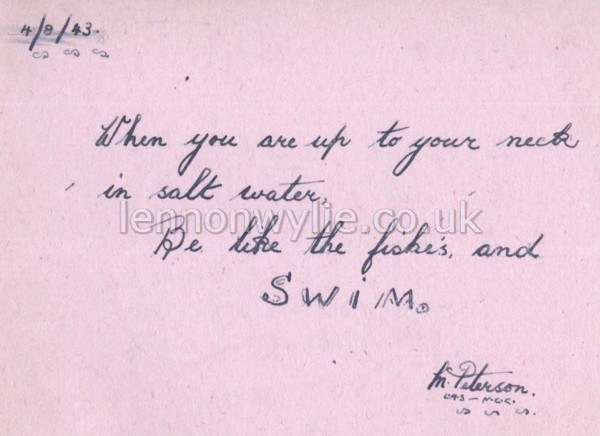 4/8/43.
When you are up to your neck
in salt water,
lemonwylie.co.uk
Be like the fishe's, and
SWIM.
Mc Peterson.